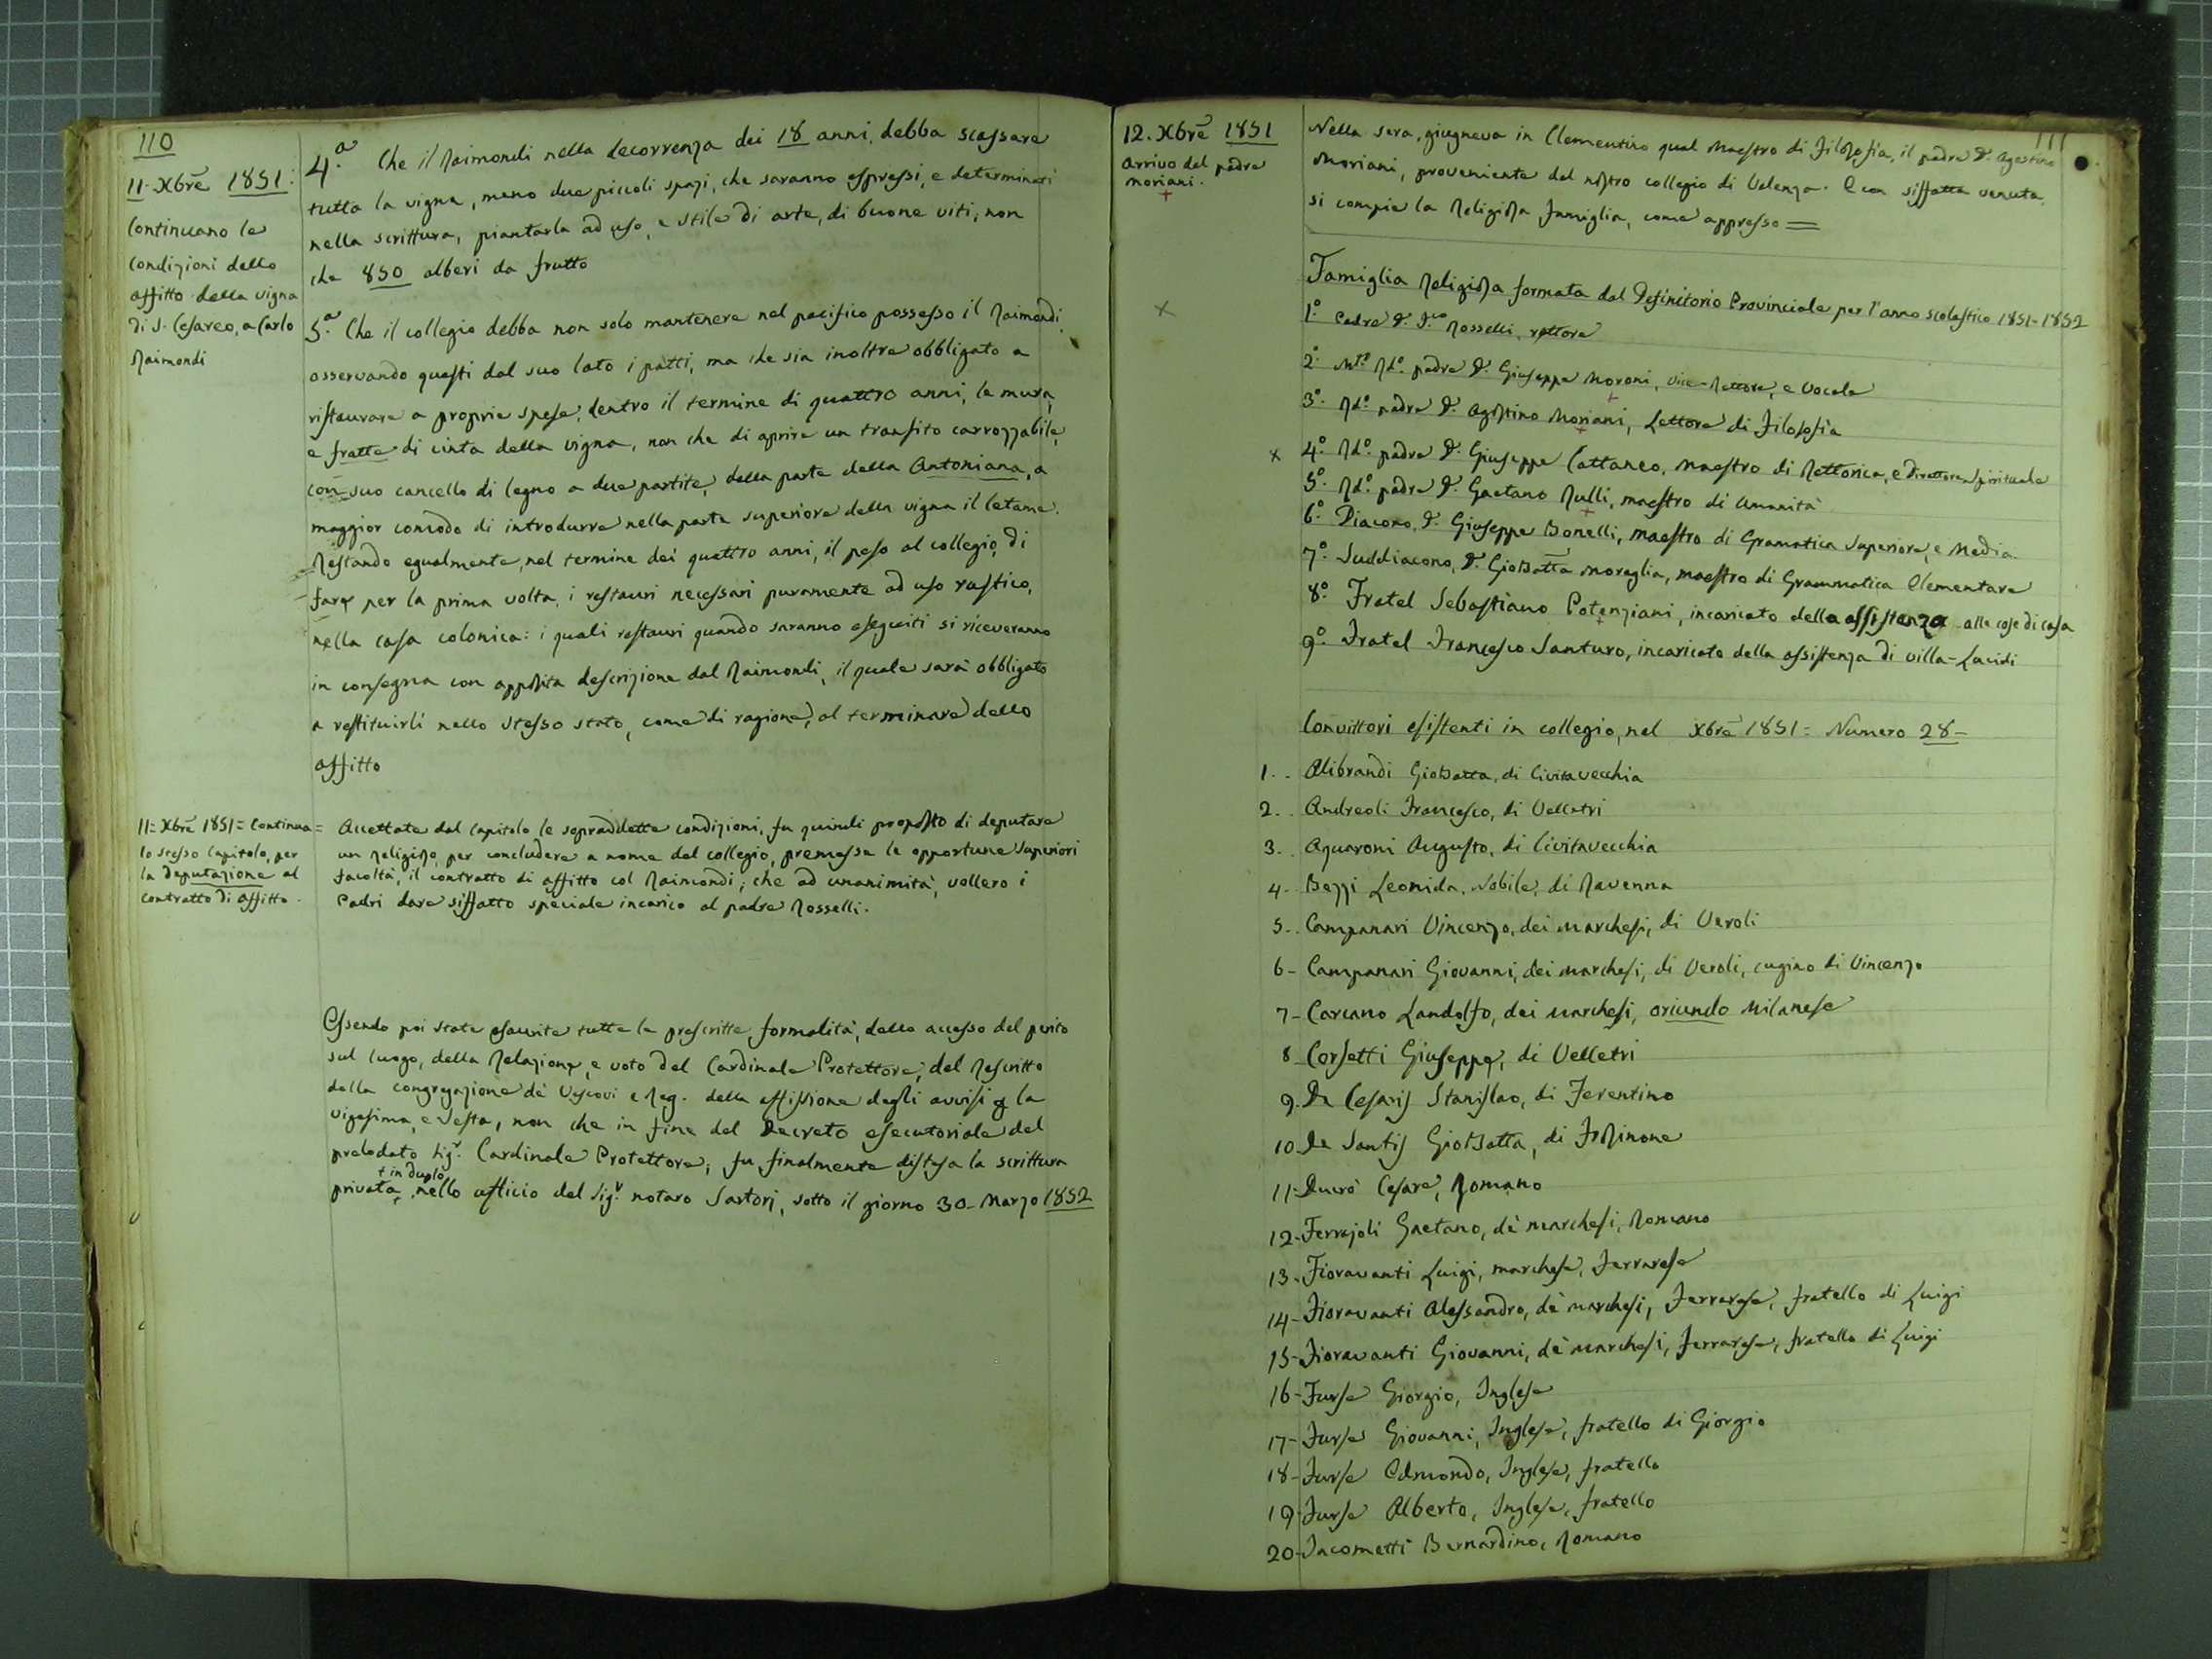 110
11. Xbre 1851:
Continuano le
condizioni dello
affitto della vigna
di S. Cesareo, a Carlo
Raimondi
4.a Che il Raimondi nella decorrenza dei 18 anni, debba scassare
tutta la vigna, meno due piccoli spazi, che saranno espressi, e determinati
nella scrittura, piantarla ad uso, e stile di arte, di buone viti, non
che 850 alberi da frutto
5.a Che il collegio debba non solo mantenere nel pacifico possesso il Raimondi,
osservando questi dal suo lato i patti, ma che sia inoltre obbligato a
ristaurare a proprie spese, dentro il termine di quattro anni, le mura,
e fratte di cinta della vigna, non che di aprire un transito carrozzabile,
con suo cancello di legno a due partite, dalla parte della Antoniana, a
maggior comodo di introdurre nella parte superiore della vigna il letame.
Restando egualmente, nel termine dei quattro anni, il peso al collegio, di
fare per la prima volta, i restauri necessari puramente ad uso rustico,
nella casa colonica: i quali restauri quando saranno eseguiti si riceveranno
in consegna con apposita descrizione dal Raimondi, il quale sarà obbligato
a restituirli nello stesso stato, come di ragione, al terminare dello
affitto
11= Xbre 1851= Continua=
lo stesso Capitolo, per
la deputazione al
contratto di affitto.
Accettate dal Capitolo le sopraddette condizioni, fu quindi proposto di deputare
un Religioso, per concludere a nome del collegio, premesse le opportune superiori
facoltà, il contratto di affitto col Raimondi; che ad unanimità, vollero i
Padri dare siffatto speciale incarico al padre Rosselli.
Essendo poi state esaurite tutte le prescritte formalità, dello accesso del perito
sul luogo, della Relazione, e voto del Cardinale Protettore, del Rescritto
della congregazione dè Vescovi e Reg. della affissione degli avvisi p la
vigesima, e sesta, non che in fine del Decreto esecutoriale del
prelodato Sig.r Cardinale Protettore, fu finalmente distesa la scrittura
+ in duplo
privata, nello officio del Sig.r notaro Sartori, sotto il giorno 30- Marzo 1852
111
12. Xbre 1851
Arrivo del padre
Moriani.
+
Nella sera, giugneva in Clementino qual Maestro di Filosofia, il padre D. Agostino
Moriani, proveniente dal nostro collegio di Valenza. E con siffatta venuta,
si compie la Religiosa Famiglia, come appresso =
x
Famiglia Religiosa formata dal Definitorio Provinciale per l'anno scolastico 1851-1852
1.o Padre D. F.co Rosselli, rettore
2.o M.to Rd.o padre D. Giuseppe Moroni, Vice-Rettore, e Vocale
3.o Rd.o padre D. Agostino Moriani, Lettore di Filosofia
x 4.o Rd.o padre D. Giuseppe Cattaneo, Maestro di Rettorica, e Direttore Spirituale
5.o Rd.o padre D. Gaetano Rulli, maestro di Umanità
6.o Diacono, D. Giuseppe Bonelli, maestro di Gramatica Superiore, e Media
7.o Suddiacono, D. GioBatta Moreglia, maestro di Grammatica Elementare
8.o Fratel Sebastiano Potenziani, incaricato della assistenza alle cose di casa
9.o Fratel Francesco Santuro, incaricato della assistenza di villa-Lucidi
Convittori esistenti in collegio, nel Xbre 1851= Numero 28-
1.. Alibrandi GioBatta, di Civitavecchia
2.. Andreoli Francesco, di Velletri
3.. Aquaroni Augusto, di Civitavecchia
4.. Bezzi Leonida, Nobile, di Ravenna
5.. Campanari Vincenzo, dei marchesi, di Veroli
6- Campanari Giovanni, dei marchesi, di Veroli, cugino di Vincenzo
7- Carcano Landolfo, dei marchesi, oriundo Milanese
8 Corsetti Giuseppe, di Velletri
9. De Cesaris Stanislao, di Ferentino
10. De Santis GioBatta, di Frosinone
11- Ducrò Cesare, Romano
12- Ferrajoli Gaetano, dè marchesi, Romano
13- Fioravanti Luigi, marchese, Ferrarese
14- Fioravanti Alessandro, dè marchesi, Ferrarese, fratello di Luigi
15- Fioravanti Giovanni, dè marchesi, Ferrarese, fratello di Luigi
16- Furse Giorgio, Inglese
17- Furse Giovanni, Inglese, fratello di Giorgio
18- Furse Edmondo, Inglese, fratello
19- Furse Alberto, Inglese, fratello
20- Jacometti Bernardino, Romano